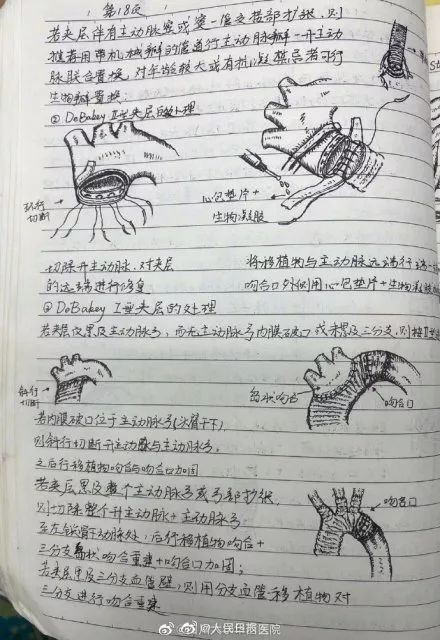 第18页
若夹层伴有主动脉窦或窦-管交接部扩张,则
推荐用带机械瓣的管道行主动脉瓣-升主动
脉联合置换,对年龄较大或有抗凝禁忌者可行
生物瓣置换
② DeBakey Ⅱ型夹层的处理
环行
切断
心包垫片+
生物凝胶
切除升主动脉,对夹层
的远端进行修复
将移植物与主动脉远端行
吻合口外侧用心包垫片+生物
④ DeBakey Ⅰ型夹层的处理
若夹层仅累及主动脉弓,而无主动脉弓内膜破口或累及三分支,则按Ⅱ型
斜行
切断
岛状吻合
吻合口
若内膜破口位于主动脉弓(头臂干下)
则斜行切断升主动脉与主动脉弓,
之后行移植物吻合与吻合口加固
若夹层累及整个主动脉弓或弓部扩张,
则切除整个升主动脉+主动脉弓
至左锁骨下动脉处,后行移植物吻合+
三分支岛状吻合重建+吻合口加固;
吻合口
若夹层累及三分支血管壁,则用分支血管移植物对
三分支进行吻合重建
@人民日报医院